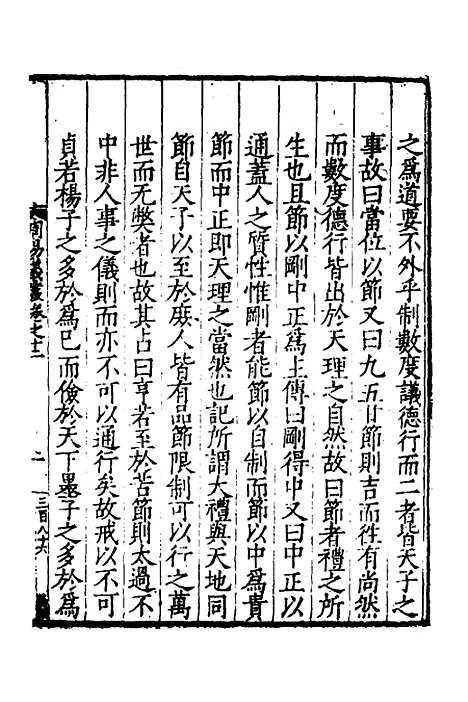 之爲道要不外乎制數度議德行而二者皆天子之
事故曰當位以節又曰九五甘節則吉而徃有尚然
而數度德行皆出於天理之自然故曰節者禮之所
生也且節以剛中正爲主傳曰剛得中又曰中正以
通蓋人之質性惟剛者能節以自制而節以中爲貴
節而中正即天理之當然也記所謂大禮與天地同
節自天子以至於庶人皆有品節限制可以行之萬
世而无弊者也故其占曰亨若至於苦節則太過不
中非人事之儀則而亦不可以通行矣故戒以不可
貞若楊子之多於爲已而儉於天下墨子之多於爲
周易議卷之十二
二
三百八十六